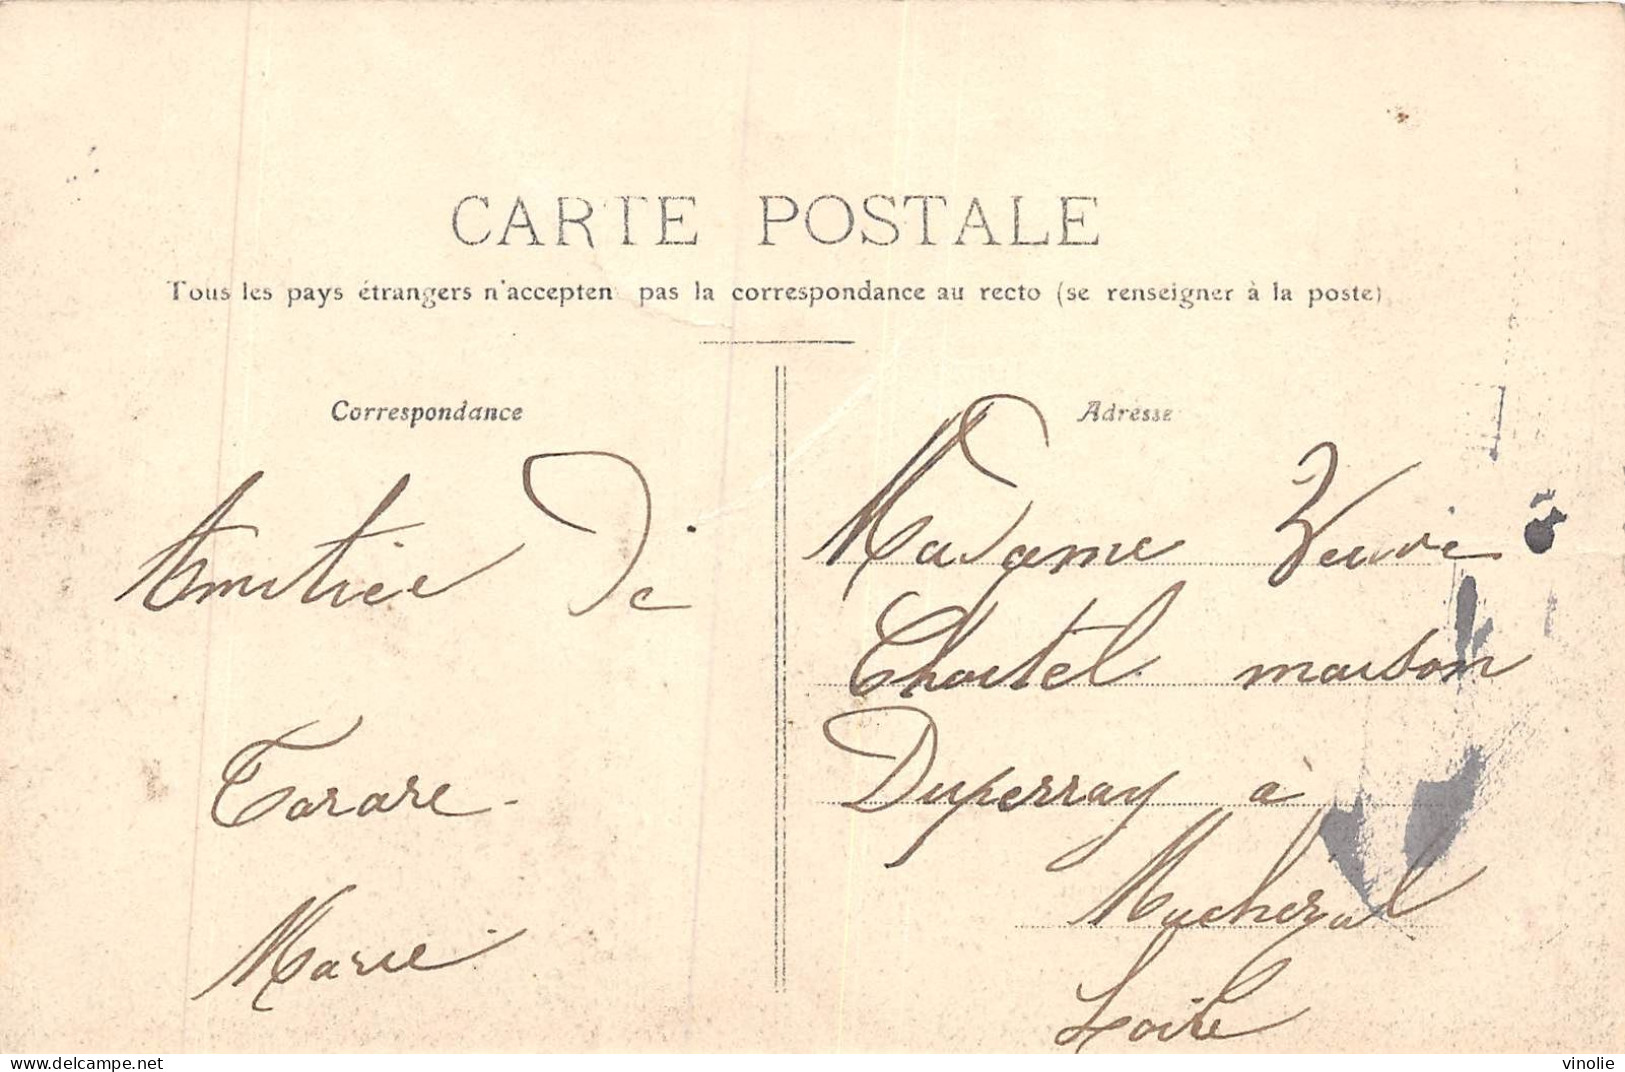 CARTE POSTALE
Tous les pays étrangers n'accepten pas la correspondance au recto (se renseigner à la poste)
Correspondance
Amitiée De
Tarare.
Marie.
Adresse
Madame Veuve
Chastel maison
Duperray à
Machezal
Loire
delcampe.net
vinolie